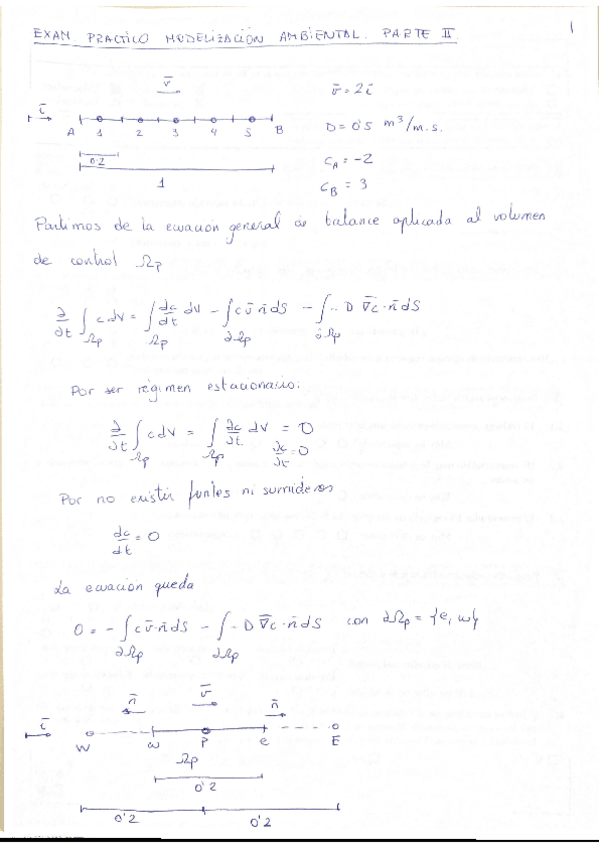 EXAMEN PRACTICO MODELIZACIÓN AMBIENTAL. PARTE II. 1
v̄
ī
A 1 2 3 4 5 B
0'2
1
v̄ = 2ī
D = 0'5 m³/m·s.
C_A = -2
C_B = 3
Partimos de la ecuación general de balance aplicada al volumen
de control Ωp
∂/∂t ∫_Ωp c dV = ∫_Ωp dc/dt dV - ∫_∂Ωp c v̄·n̄ dS - ∫_∂Ωp - D ∇̄c·n̄ dS
Por ser régimen estacionario:
∂/∂t ∫_Ωp c dV = ∫_Ωp ∂c/∂t dV = 0
∂c/∂t = 0
Por no existir fuentes ni sumideros
dc/dt = 0
La ecuación queda
0 = - ∫_∂Ωp c v̄·n̄ dS - ∫_∂Ωp - D ∇̄c·n̄ dS con ∂Ωp = {e, w}
n̄ v̄ n̄
ī
W w P e E
Ωp
0'2
0'2 0'2